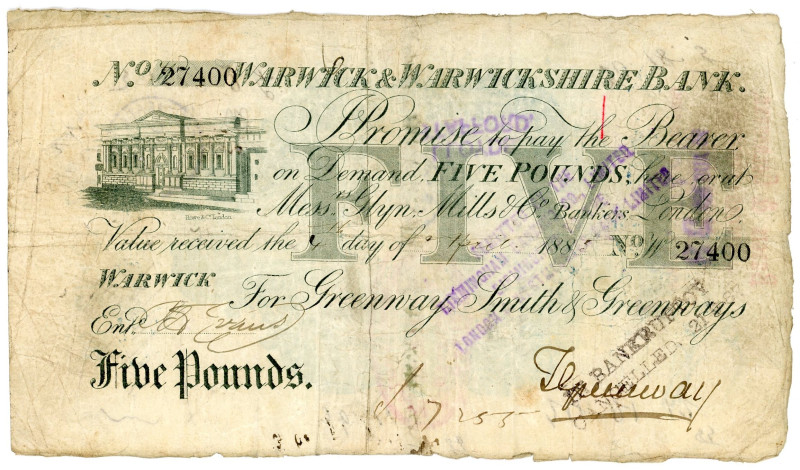 No W 27400 WARWICK & WARWICKSHIRE BANK.
I Promise to pay the Bearer
on Demand, FIVE POUNDS, here or at
Messrs Glyn, Mills & Co. Bankers London.
Value received the day of April 188 No W 27400
FIVE
WARWICK
For Greenway, Smith & Greenways
Entd Evans
Five Pounds.
Greenway
17255
BANKRUPTCY
CANCELLED
LIMITED
LONDON